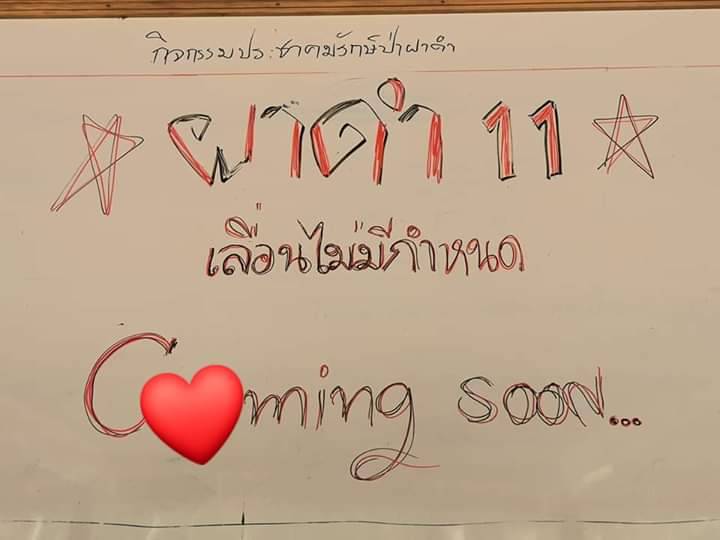 กิจกรรมประชาคมรักษ์ป่าผาดำ
ผาดำ 11
เลื่อนไม่มีกำหนด
C❤ming soon...